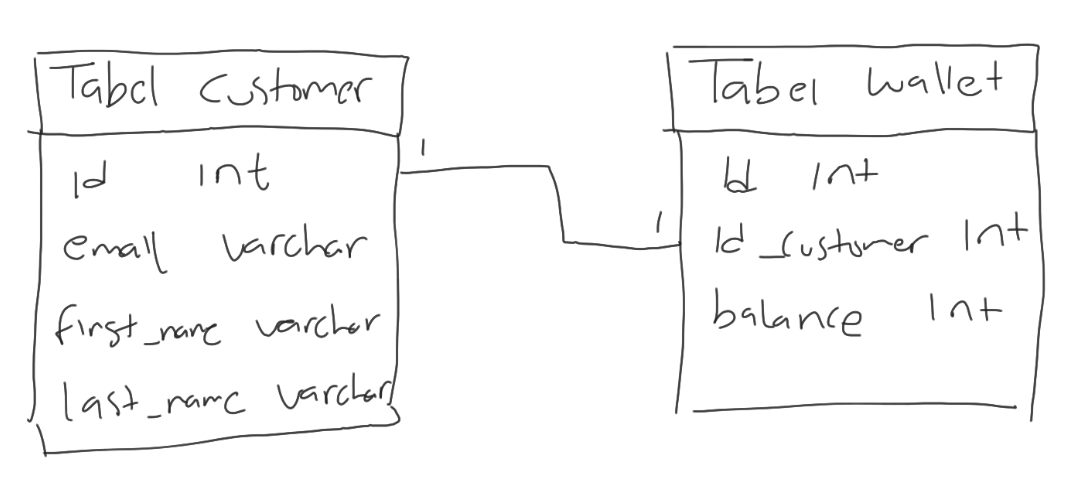 Tabel Customer
Id int
email varchar
first_name varchar
last_name varchar
1
1
Tabel wallet
Id int
Id_customer int
balance int